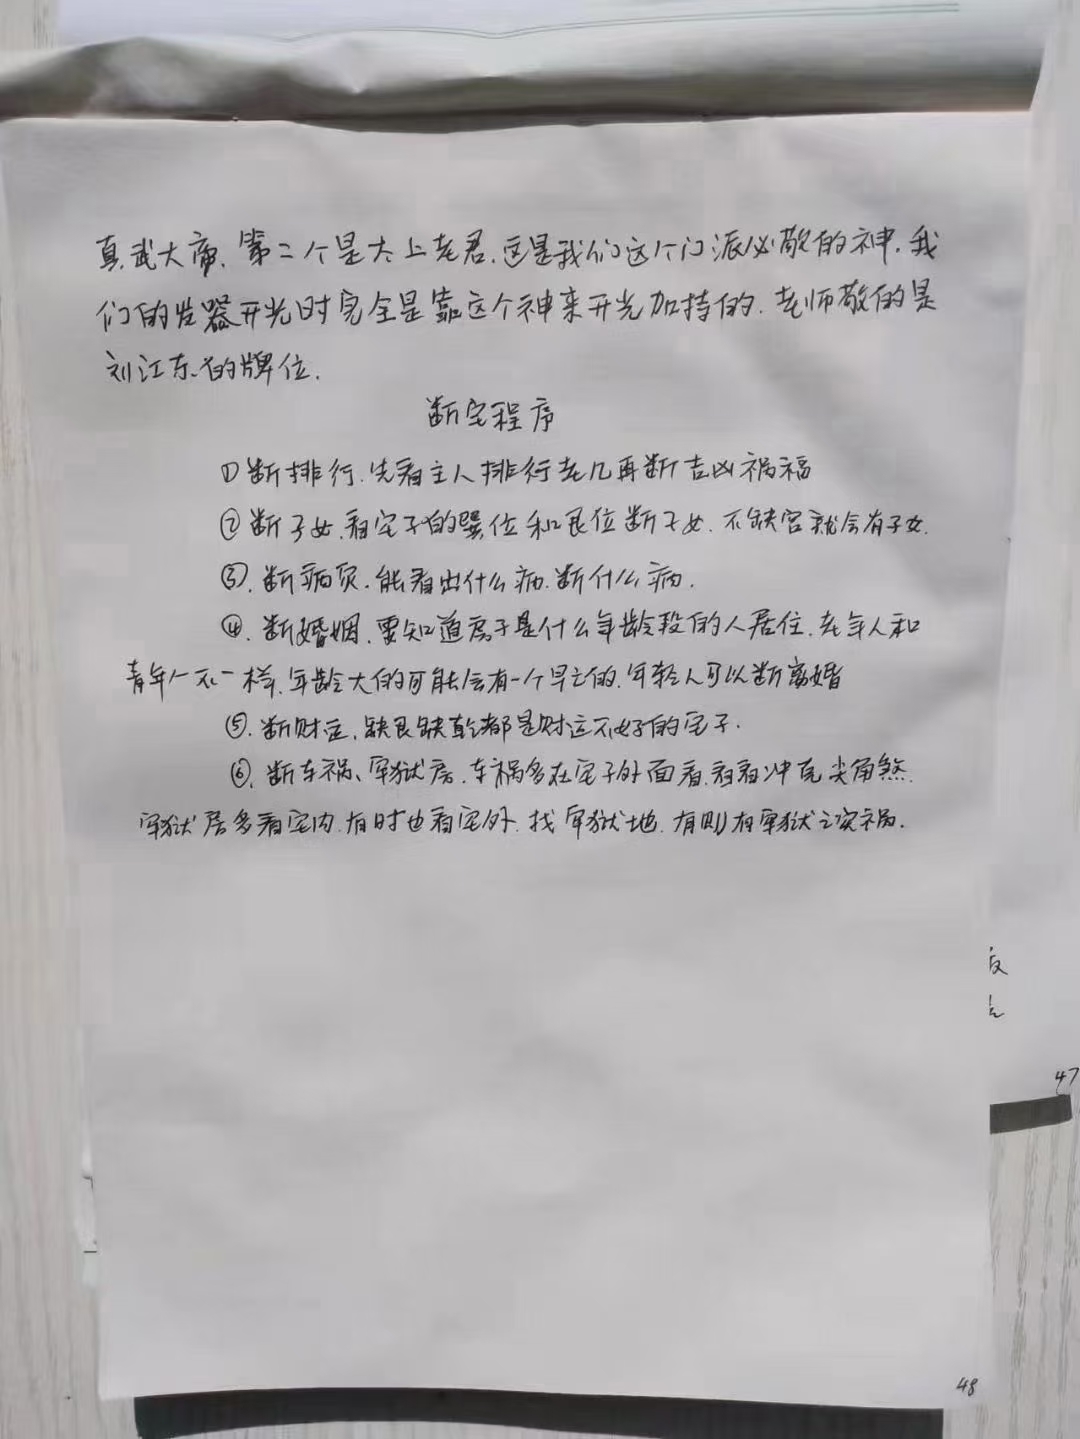 真武大帝、第二个是太上老君.这是我们这个门派必敬的神.我
们的发器开光时完全是靠这个神来开光加持的.老师敬的是
刘江东的牌位.
断宅程序
①断排行.先看主人排行老几再断吉凶祸福
②断子女.看宅子的巽位和艮位断子女.不缺宫就会有子女.
③.断病灾.能看出什么病.断什么病.
④.断婚姻.要知道房子是什么年龄段的人居住.老年人和
青年人不一样.年龄大的可能会有一个早亡的.年轻人可以断离婚
⑤.断财运.缺艮缺乾都是财运不好的宅子.
⑥.断车祸、牢狱房.车祸多在宅子外面看.看看冲克尖角煞.
牢狱房多看宅内.有时也看宅外.找牢狱地.有则有牢狱之灾祸.
反
47
48